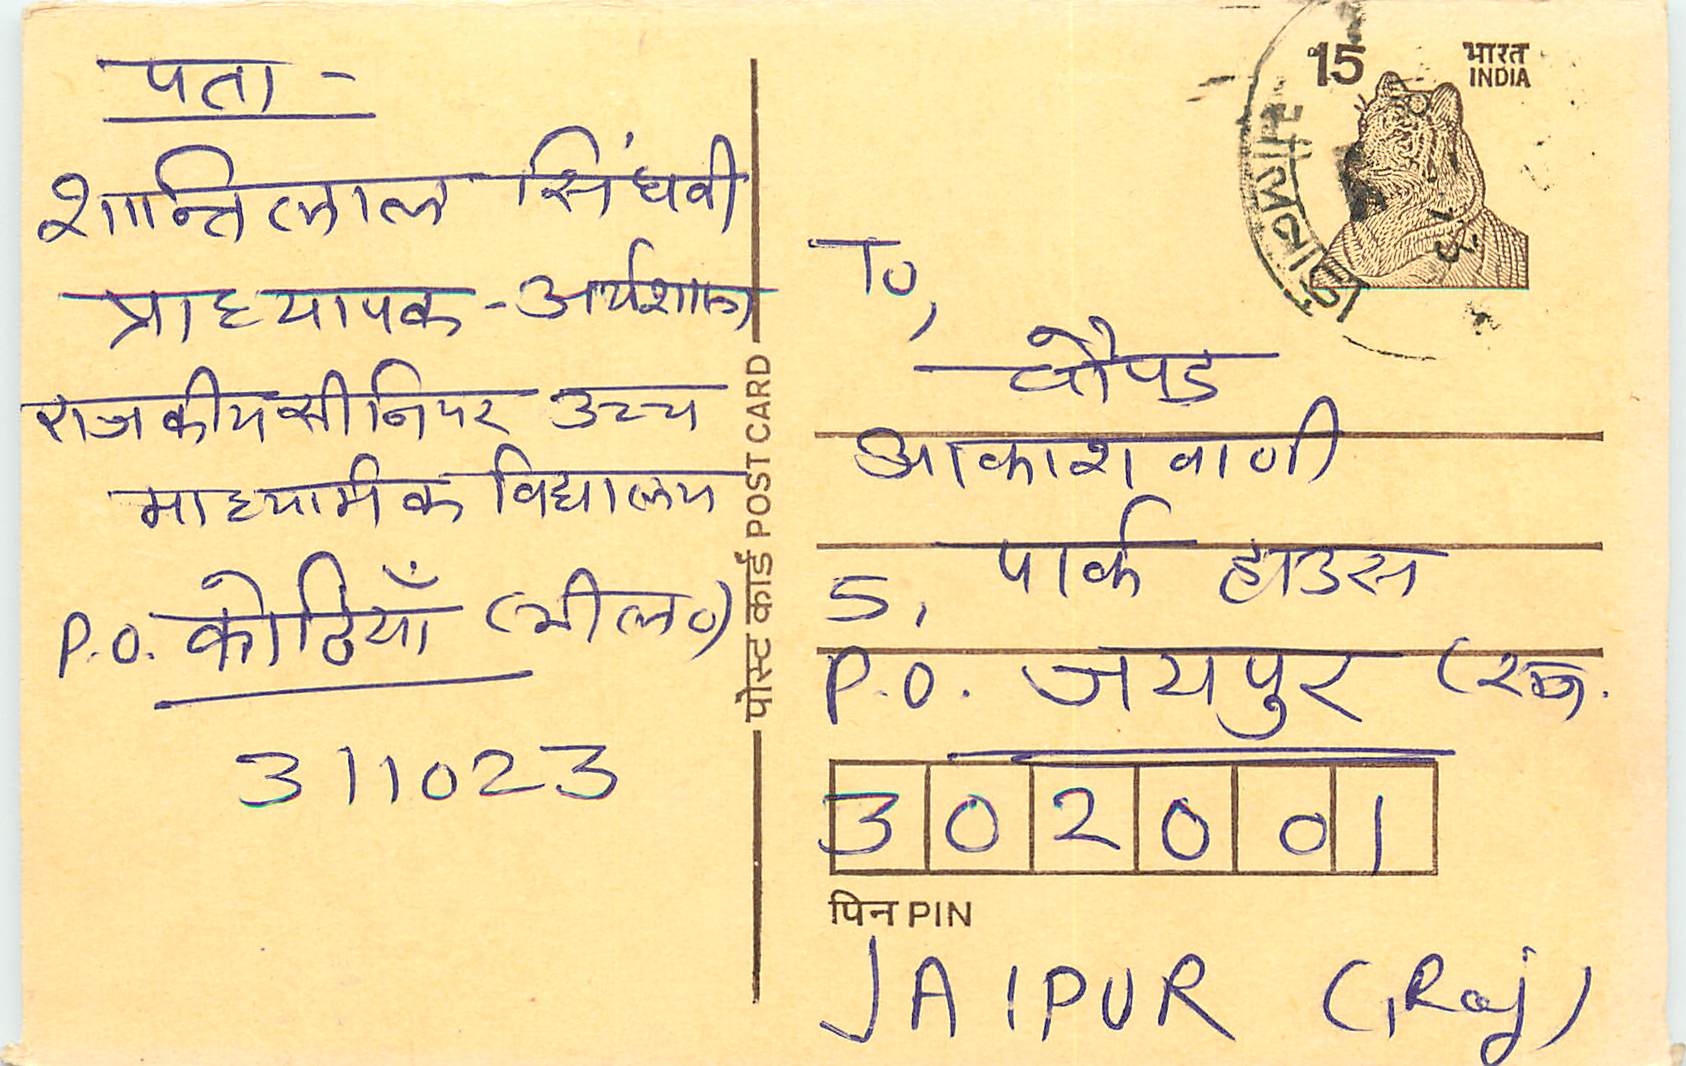 पता -
शान्तिलाल सिंघवी
प्राध्यापक - अर्थशास्त्र
राजकीय सीनियर उच्च
माध्यमिक विद्यालय
P.O. कोठियाँ (भील०)
311023
पोस्ट कार्ड POST CARD
15 भारत
INDIA
To,
चौपड
आकाशवाणी
5, पार्क हाउस
P.O. जयपुर (राज.
302001
पिन PIN
JAIPUR (Raj)